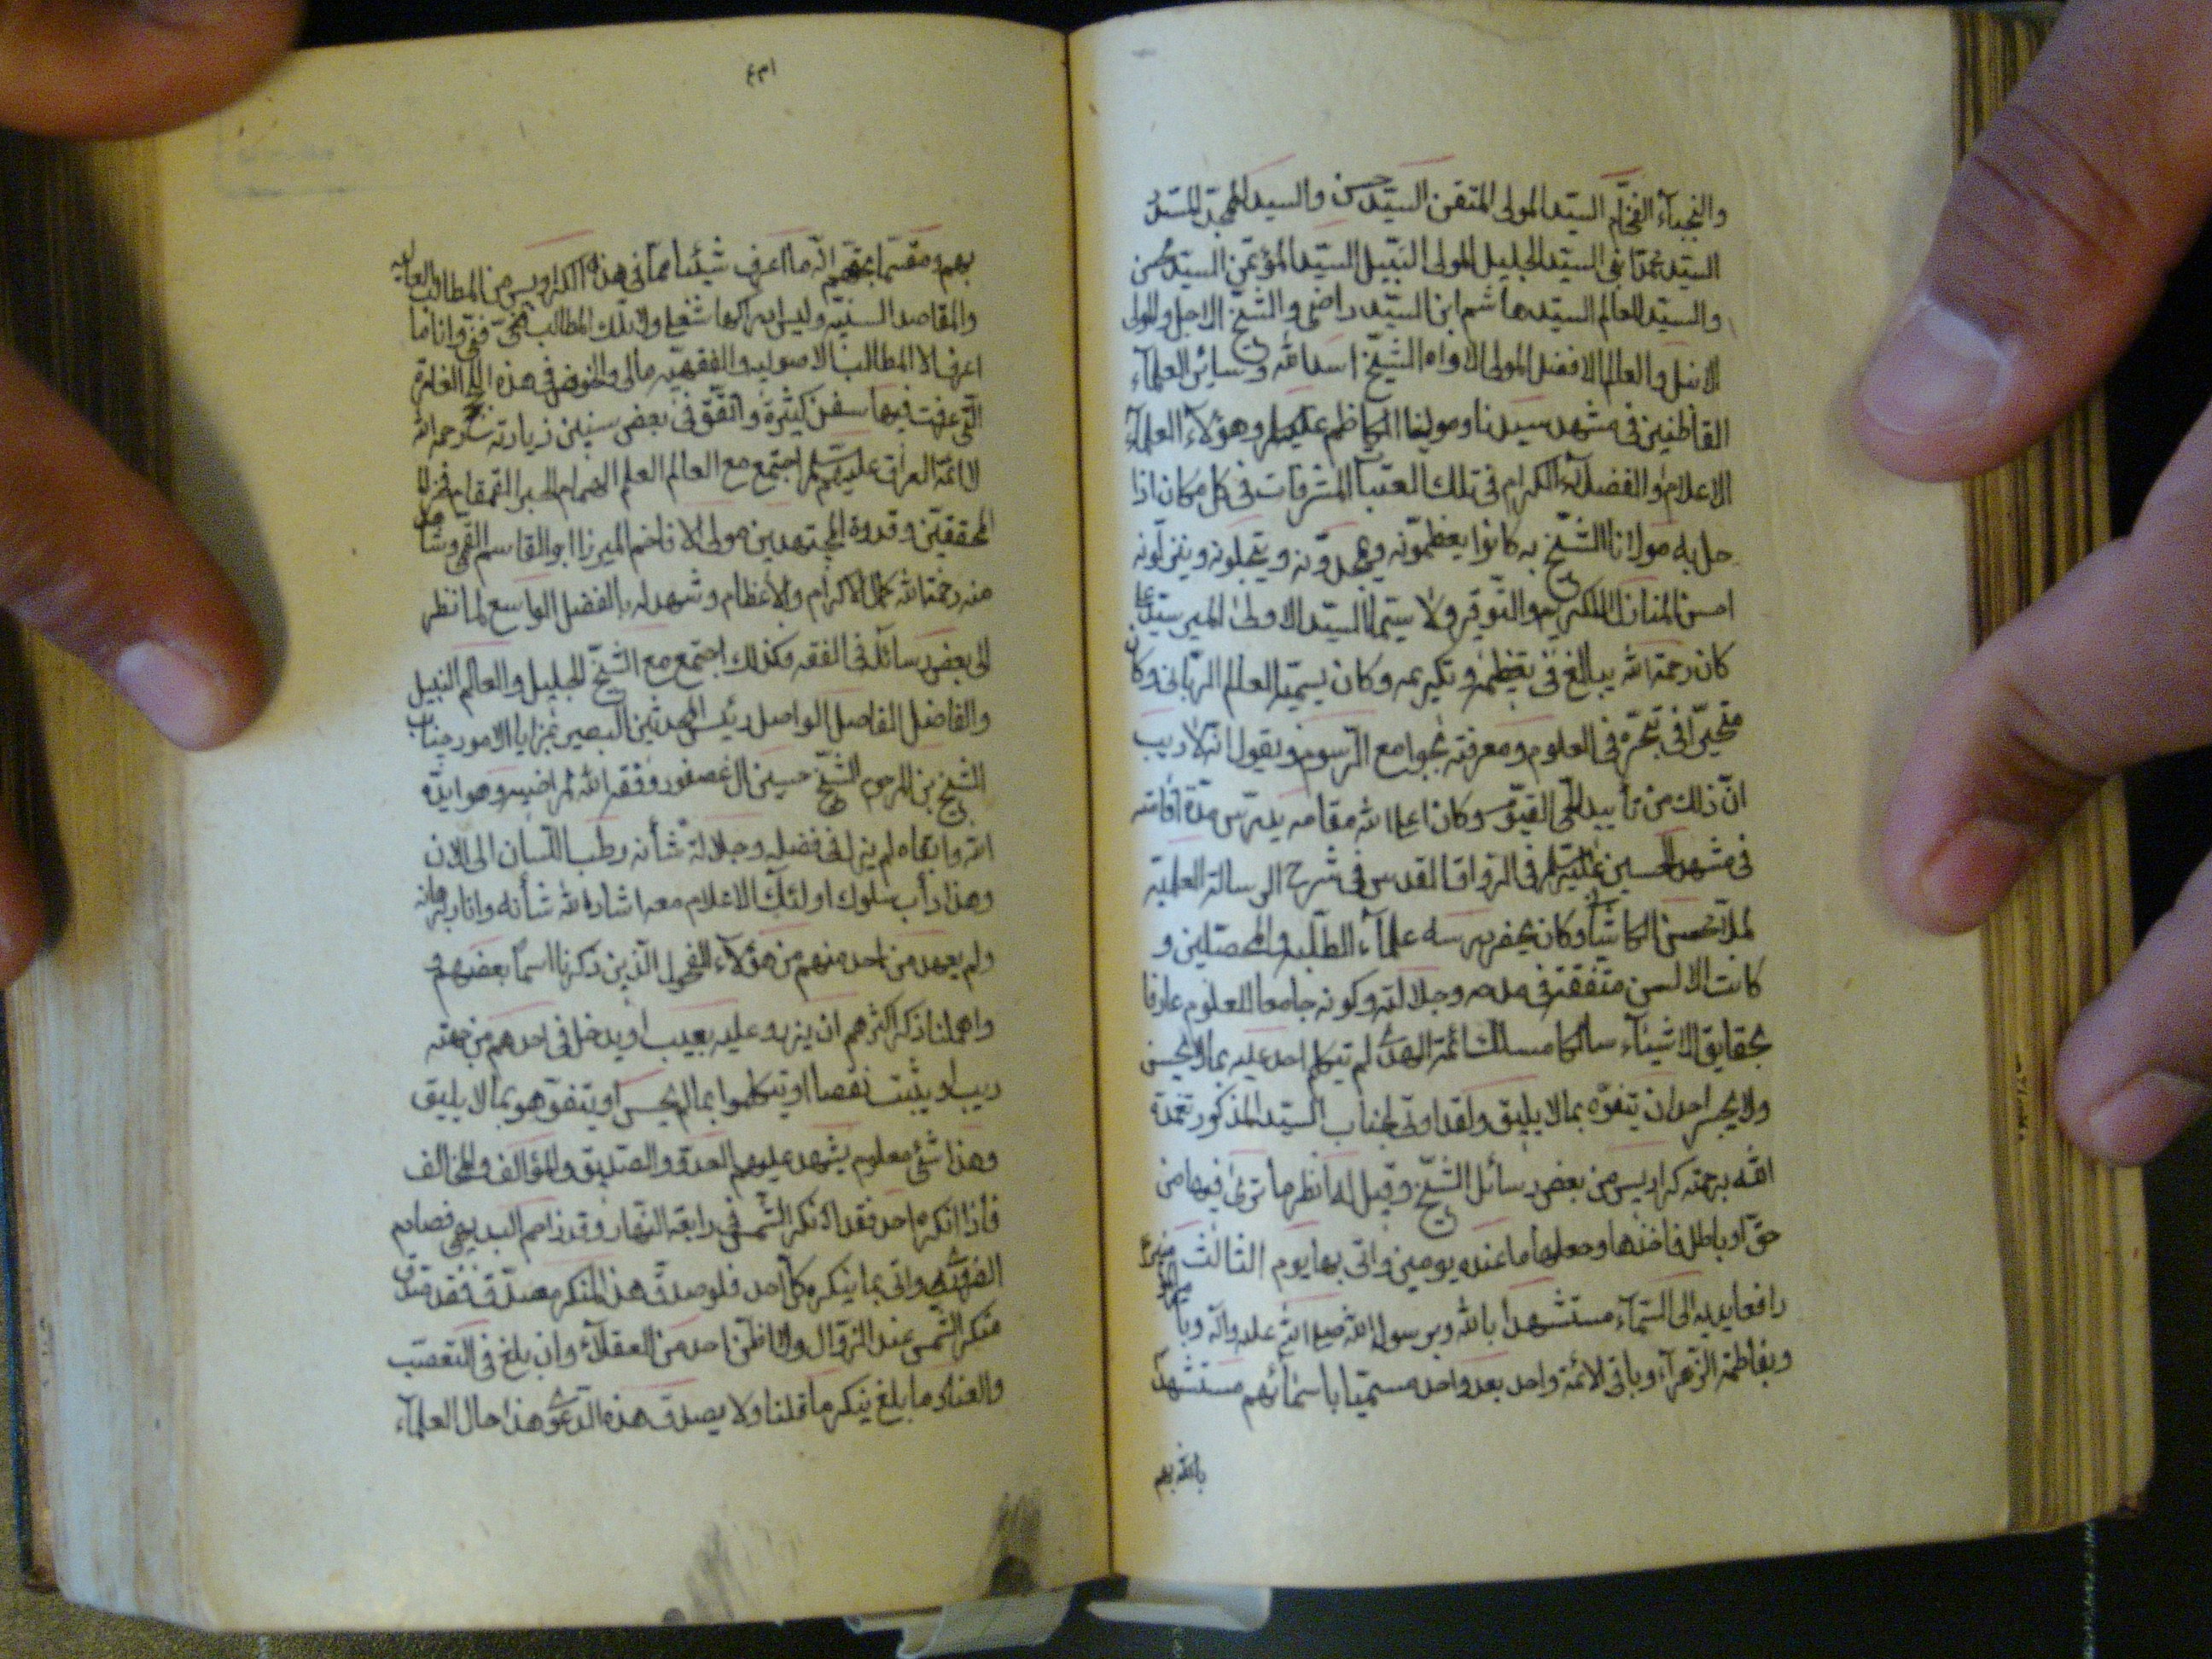 والنجبآء الفخام السيّد المولى المتقن السيّد حسن والسيد الممجد المسدد
السيّد محمّد ابنى السيّد الجليل المولى النبيل السيّد المؤتمن السيّد محسن
والسيّد العالم السيّد هاشم ابن السيّد راضى والشيخ الاجل والمولى
الانبل والعالم الافضل المولى الاواه الشيخ اسد الله وسائر العلمآء
القاطنين فى مشهد سيدنا ومولينا الكاظم عليه السلام وهؤلآء العلمآء
الاعلام والفضلآء الكرام فى تلك العتبات المشرفات فى كل مكان اذا
حل به مولانا الشيخ به كانوا يعظمونه ويمجدونه ويبجلونه وينزلونه
احسن المنازل بالتكريم والتوقير ولا سيما السيّد الاوطى المير سيد على
كان رحمة الله يبالغ فى تعظيمه وتكريمه وكان يسميه العالم الربانى وكان
متحيرا فى تبحره فى العلوم ومعرفته بجوامع الرسوم ويقول انه لا ريب
انّ ذلك من تأييد الحى القيّوم وكان اعلى الله مقامه يدرّس مدّة اقامته
فى مشهد الحسين عليه السلام فى الرواق المقدس فى شرح الرسالة العلمية
لملا محسن الكاشانى وكان يحضر درسه علمآء الطلبة والمحصّلين و
كانت الالسن متفقة فى مدحه وجلالته وكونه جامعا للعلوم عارفا
بحقايق الاشيآء سالكا مسلك ائمة الهدى لم يتكلم احد عليه بما لا يحسن
ولا يجسر احد ان يتفوّه بما لا يليق ولقد اوتى لجناب السيّد المذكور تغمده
الله برحمته كراريس من بعض رسائل الشيخ وقيل له انظر ما ترى فيها من
حق او باطل فاخذها وجعلها ما عنده يومين واتى بها يوم الثالث
رافعا يديه الى السّمآء مستشهدا بالله وبرسول الله صلى الله عليه وآله
وبفاطمة الزهرآء وباقى الائمة واحد بعد واحد مسميّا باسمائهم مستشهدا
بالله بهم
١٣٤
بهم ومقسما بحقهم انّه ما اعرف شيئا مما فى هذه الكراريس من المطالب العاليه
والمقاصد السنيّه وليس ادراكها شغلى ولا تلك المطالب فنى وانا ما
اعرف الا المطالب الاصوليه والفقهيّه مالى والخوض فى هذه اللجج الغامرة
التى غرقت فيها سفن كثيرة واتفق فى بعض سنين زيارته رحمه الله
لائمة العراق عليهم السلام اجتمع مع العالم العلم الهمام الحبر القمقام فخر
المحققين وقدوة المجتهدين مولى الافاخم الميرزا ابو القاسم القمى وشاهد
منه رحمة الله كمال الاكرام والاعظام وشهد له بالفضل الواسع لما نظر
الى بعض رسائله فى الفقه وكذلك اجتمع مع الشيخ الجليل والعالم النبيل
والفاضل الفاصل الواصل رئيس المحدثين البصير بمزايا الامور جناب
الشيخ بن المرحوم الشيخ حسين ال عصفور وفقه الله لمراضيه وهو ايّده
الله وابقاه لم يزل فى فضله وجلالة شأنه رطب اللسان الى الان
وهذا دأب سلوك اولئك الاعلام معه اشاد الله شأنه وانار برهانه
ولم يعهد من احد منهم من هؤلآء الفحول الذين ذكرنا اسمآ بعضهم و
واهملنا ذكر اكثرهم ان يزرو عليه بعيب او يدخل فى احدهم من جهته
ريب او يثبت نقصا او يتكلموا بما لا يحسن او يتفوّهو بما لا يليق
وهذا شئ معلوم يشهد عليهم العدو والصديق والمؤالف والمخالف
فاذا انكره احد فقد انكر الشمس فى رابعة النهار وقد زاحم البديهى فصادم
الضرورة واتى بما ينكره كل احد فلو صدق هذا المنكر مصدّق فقد صدق
منكر الشمس عند الزوال ولا اظنّ احد من العقلآء وان بلغ فى التعصب
والعناد ما بلغ ينكر ما قلنا ولا يصدق هذه الدعوى هذا حال العلمآء